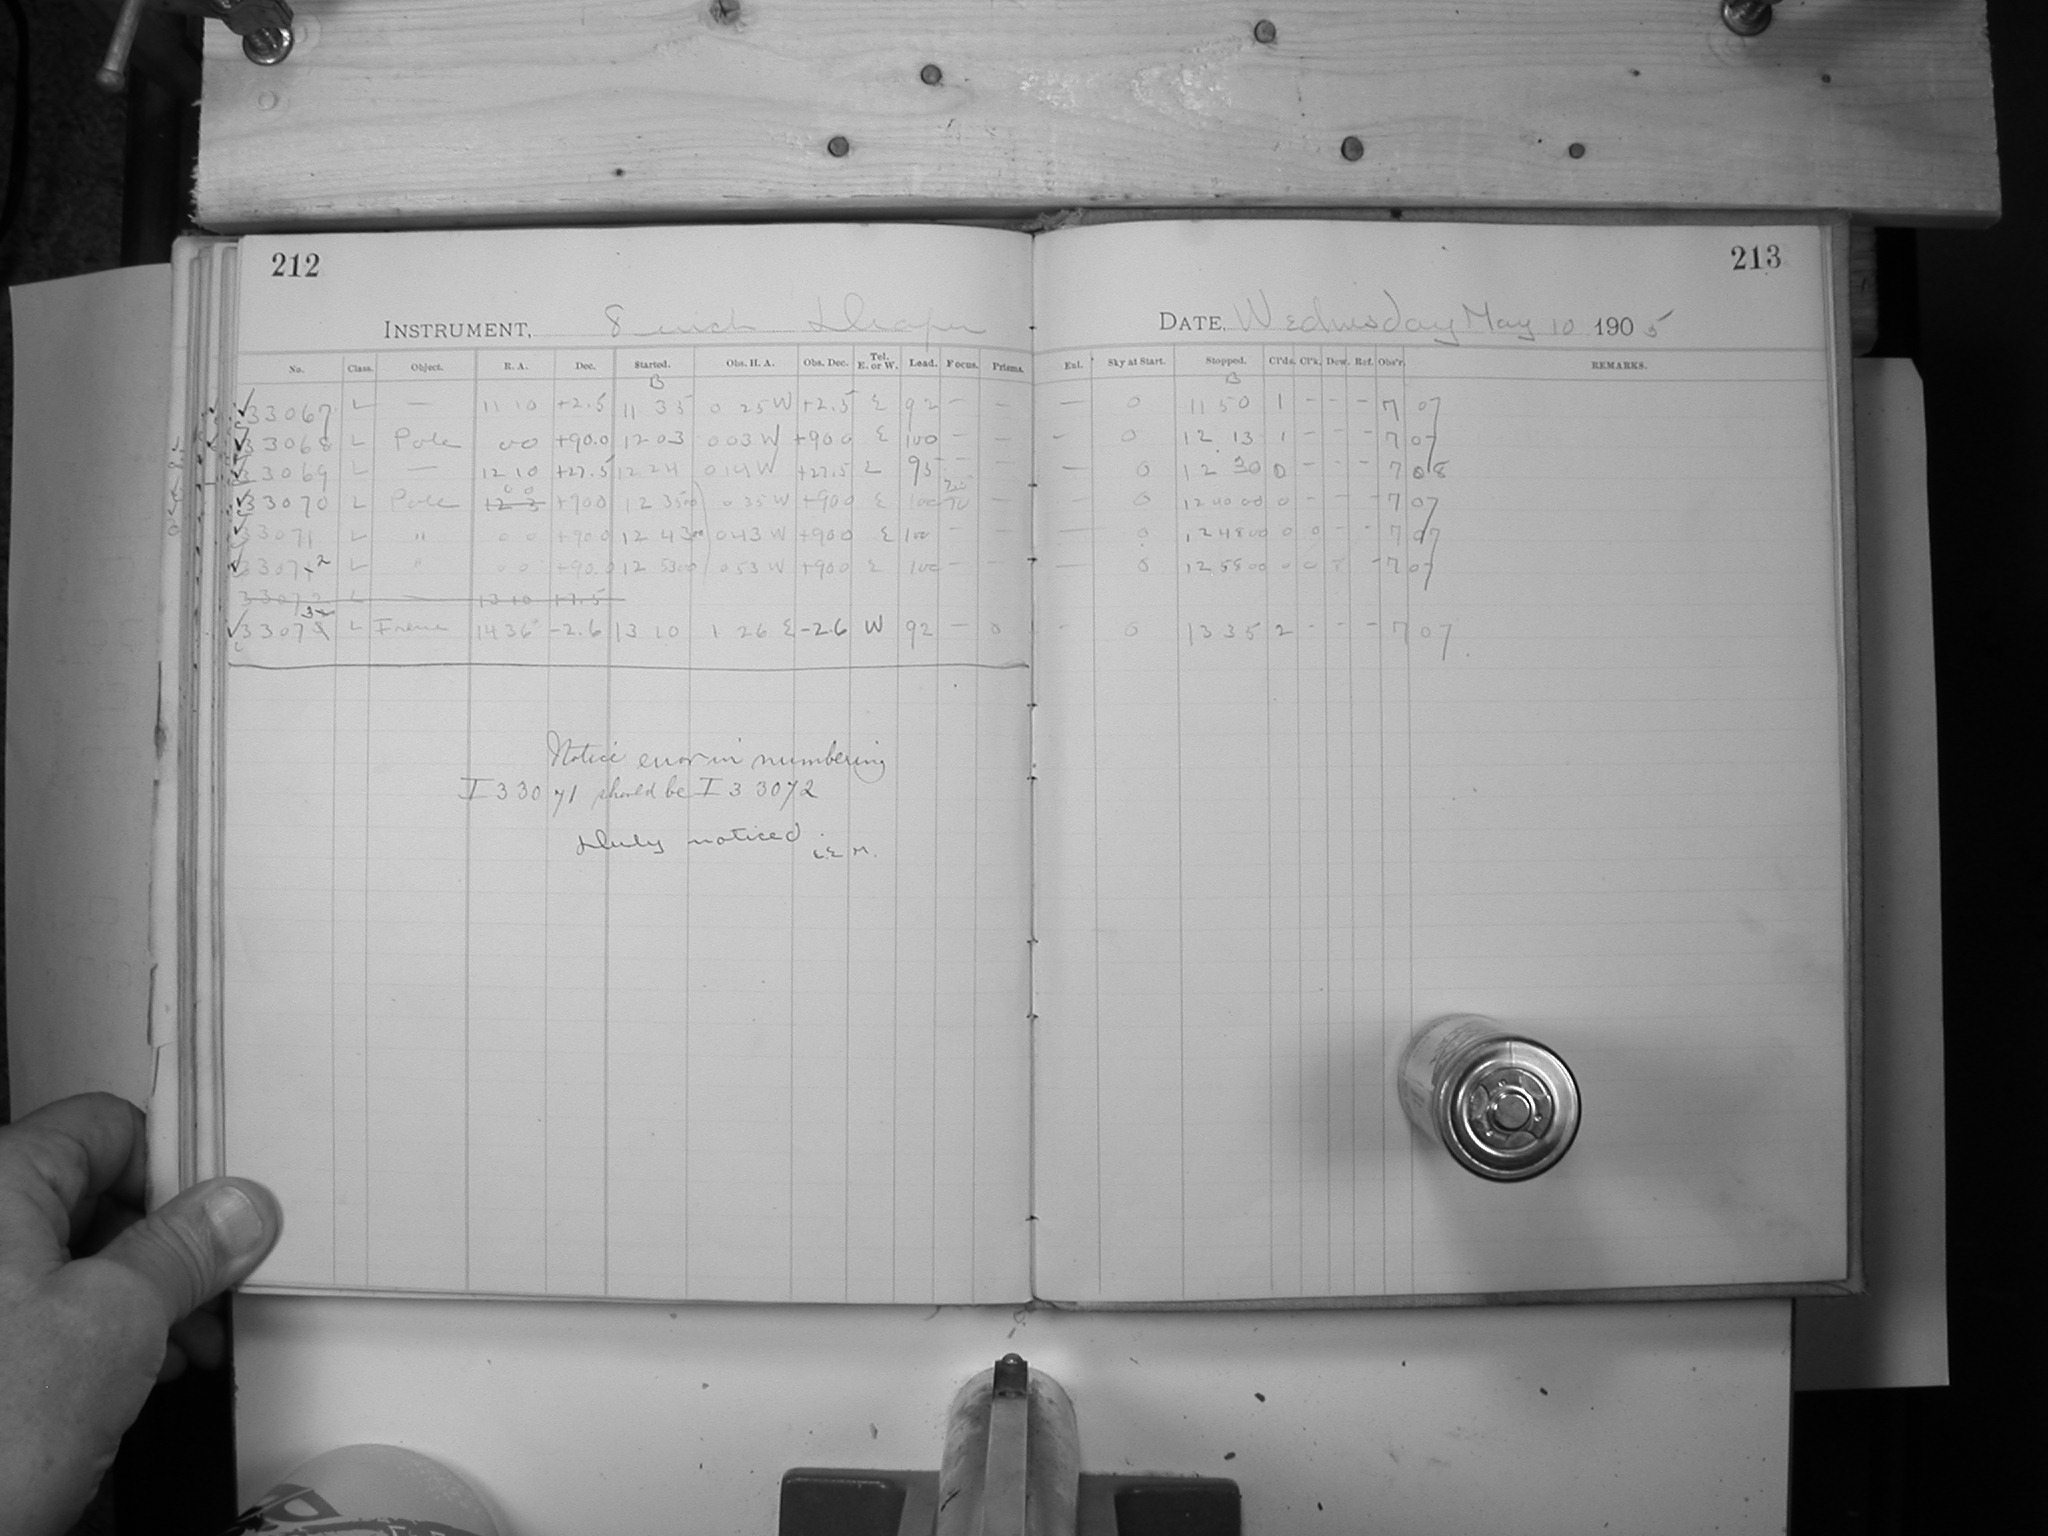 212
213
INSTRUMENT, 8 inch Draper
DATE, Wednesday May 10 1905
No. Class. Object. R. A. Dec. Started. Obs. H. A. Obs. Dec. Tel. E. or W. Lead. Focus. Prisms. Exl. Sky at Start. Stopped. Cl'ds. Cl'k. Dew. Ref. Obs'r. REMARKS.
B B
33067 L — 11 10 +2.5 11 35 0 25 W +2.5 E 92 — — — 0 11 50 1 - - - 7 07
33068 L Pole 00 +90.0 12 03 0 03 W +90 0 E 100 — — - 0 12 13 1 - - - 7 07
33069 L — 12 10 +27.5 12 24 0 14 W +27.5 E 95 — — 0 12 30 0 - - - 7 08
0 0
33070 L Pole +90 0 12 35 00 0 35 W +90 0 E 100 — 0 12 40 00 0 - - - 7 07
33071 L " 0 0 +90 0 12 43 00 0 43 W +90 0 E 100 - — — 0 12 48 00 0 0 - - 7 07
33072 L " 0 0 +90.0 12 53 00 0 53 W +90 0 E 100 - — — 0 12 58 00 0 0 - 7 07
33072 L — 13 10 +7.5
33073 L Frene 14 36 -2.6 13 10 1 26 E -2.6 W 92 — 0 - 0 13 35 2 - - - 7 07
Notice error in numbering
I 33071 should be I 33072
Duly noticed